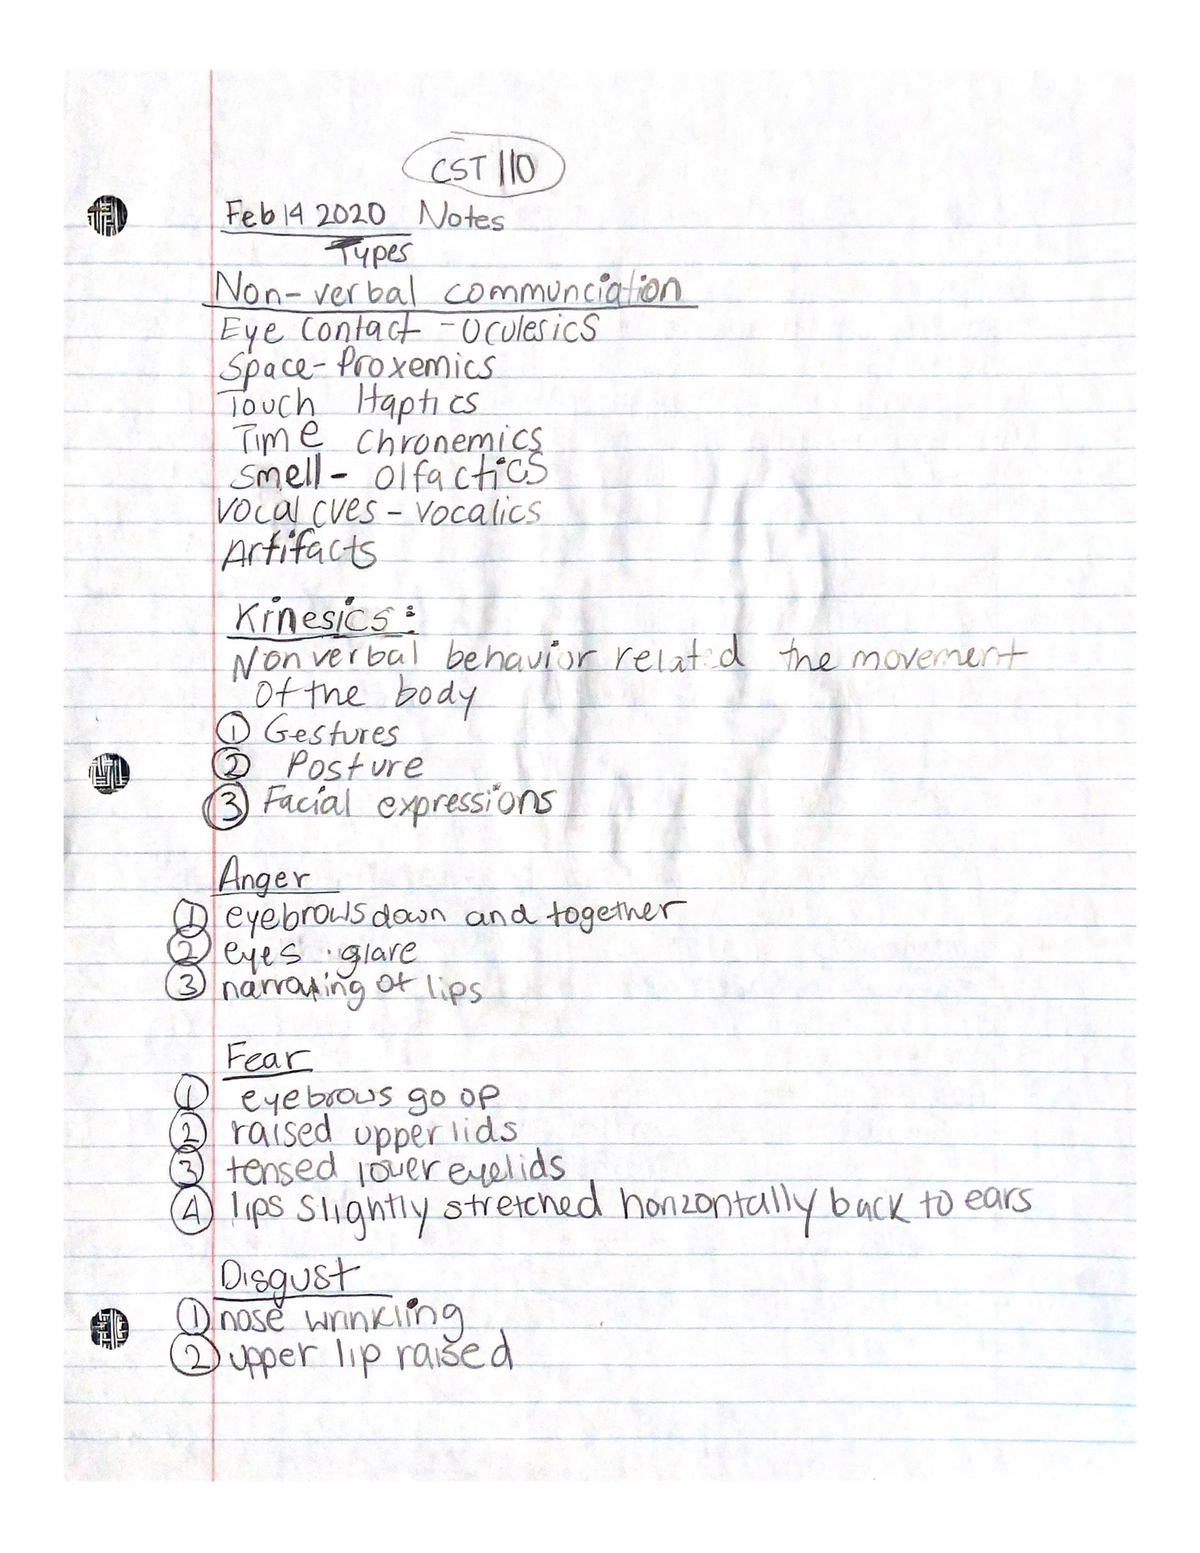 CST 110
Feb 14 2020 Notes
Types
Non-verbal communciation
Eye Contact - Oculesics
Space- Proxemics
Touch Haptics
Time Chronemics
Smell - Olfactics
Vocal cues - Vocalics
Artifacts
Kinesics:
Nonverbal behavior related the movement
Of the body
① Gestures
② Posture
③ Facial expressions
Anger
① eyebrows down and together
② eyes glare
③ narrowing of lips
Fear
① eyebrows go up
② raised upper lids
③ tensed lower eyelids
④ lips slightly stretched horizontally back to ears
Disgust
① nose wrinkling
② upper lip raised